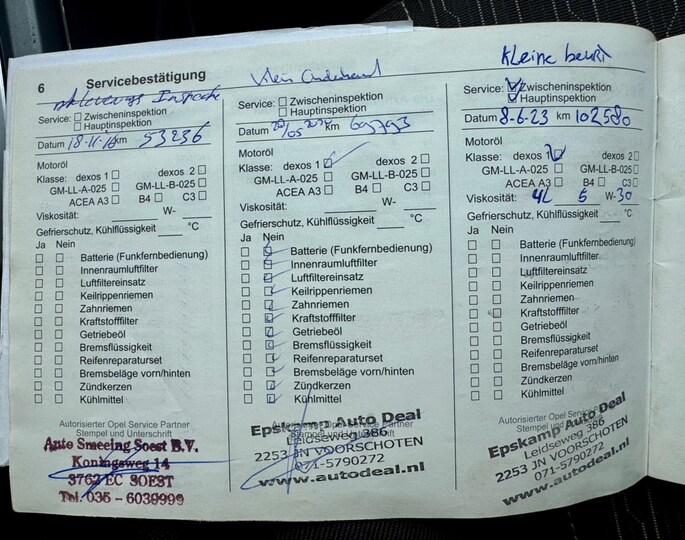 6 Servicebestätigung
Service: Zwischeninspektion
Hauptinspektion
Datum 18-11-16 km 53236
Motoröl
Klasse: dexos 1 dexos 2
GM-LL-A-025 GM-LL-B-025
ACEA A3 B4 C3
Viskosität: W-
Gefrierschutz, Kühlflüssigkeit °C
Ja Nein
Batterie (Funkfernbedienung)
Innenraumluftfilter
Luftfiltereinsatz
Keilrippenriemen
Zahnriemen
Kraftstofffilter
Getriebeöl
Bremsflüssigkeit
Reifenreparaturset
Bremsbeläge vorn/hinten
Zündkerzen
Kühlmittel
Autorisierter Opel Service Partner
Stempel und Unterschrift
Auto Smeeing Soest B.V.
Koningsweg 14
3762 EC SOEST
Tel. 035 - 6039999
Klein Onderhoud
Service: Zwischeninspektion
Hauptinspektion
Datum km
Motoröl
Klasse: dexos 1 dexos 2
GM-LL-A-025 GM-LL-B-025
ACEA A3 B4 C3
Viskosität: W-
Gefrierschutz, Kühlflüssigkeit °C
Ja Nein
Batterie (Funkfernbedienung)
Innenraumluftfilter
Luftfiltereinsatz
Keilrippenriemen
Zahnriemen
Kraftstofffilter
Getriebeöl
Bremsflüssigkeit
Reifenreparaturset
Bremsbeläge vorn/hinten
Zündkerzen
Kühlmittel
Epskamp Auto Deal
Leidseweg 386
2253 JN VOORSCHOTEN
071-5790272
www.autodeal.nl
Kleine beurt
Service: Zwischeninspektion
Hauptinspektion
Datum 8-6-23 km 102580
Motoröl
Klasse: dexos 1 dexos 2
GM-LL-A-025 GM-LL-B-025
ACEA A3 B4 C3
Viskosität: 4L 5 W-30
Gefrierschutz, Kühlflüssigkeit °C
Ja Nein
Batterie (Funkfernbedienung)
Innenraumluftfilter
Luftfiltereinsatz
Keilrippenriemen
Zahnriemen
Kraftstofffilter
Getriebeöl
Bremsflüssigkeit
Reifenreparaturset
Bremsbeläge vorn/hinten
Zündkerzen
Kühlmittel
Autorisierter Opel Service
Stempel und
Epskamp Auto Deal
Leidseweg 386
2253 JN VOORSCHOTEN
071-5790272
www.autodeal.nl